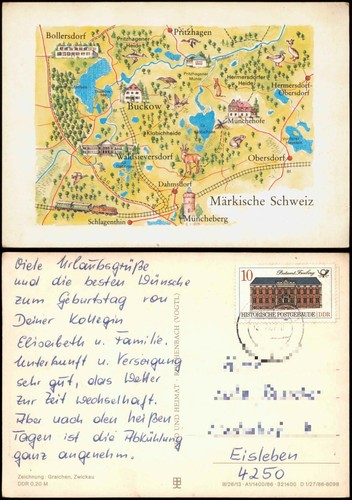 Bollersdorf
Pritzhagen
Pritzhagener
Heide
Pritzhagener
Mühle
Hermersdorfer
Heide
Hermersdorf-
Obersdorf
Buckow
Münchehofe
Klobichheide
Waldsieversdorf
Obersdorf
Dahmsdorf
Müncheberg
Schlagenthin
Märkische Schweiz
Viele Urlaubsgrüße
und die besten Wünsche
zum Geburtstag von
Deiner Kollegin
Elisabeth u. Familie.
Unterkunft u. Versorgung
sehr gut, das Wetter
zur Zeit wechselhaft.
Aber nach den heißen
Tagen ist die Abkühlung
ganz angenehm.
Zeichnung: Greichen, Zwickau
DDR 0,20 M
BILD UND HEIMAT REICHENBACH (VOGTL)
10
Postamt Freiberg
HISTORISCHE POSTGEBÄUDE DDR
Eisleben
4250